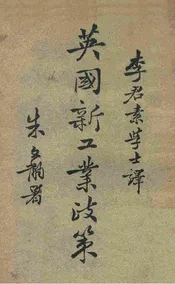 李君素学士譯
英國新工業政策
朱文黼署